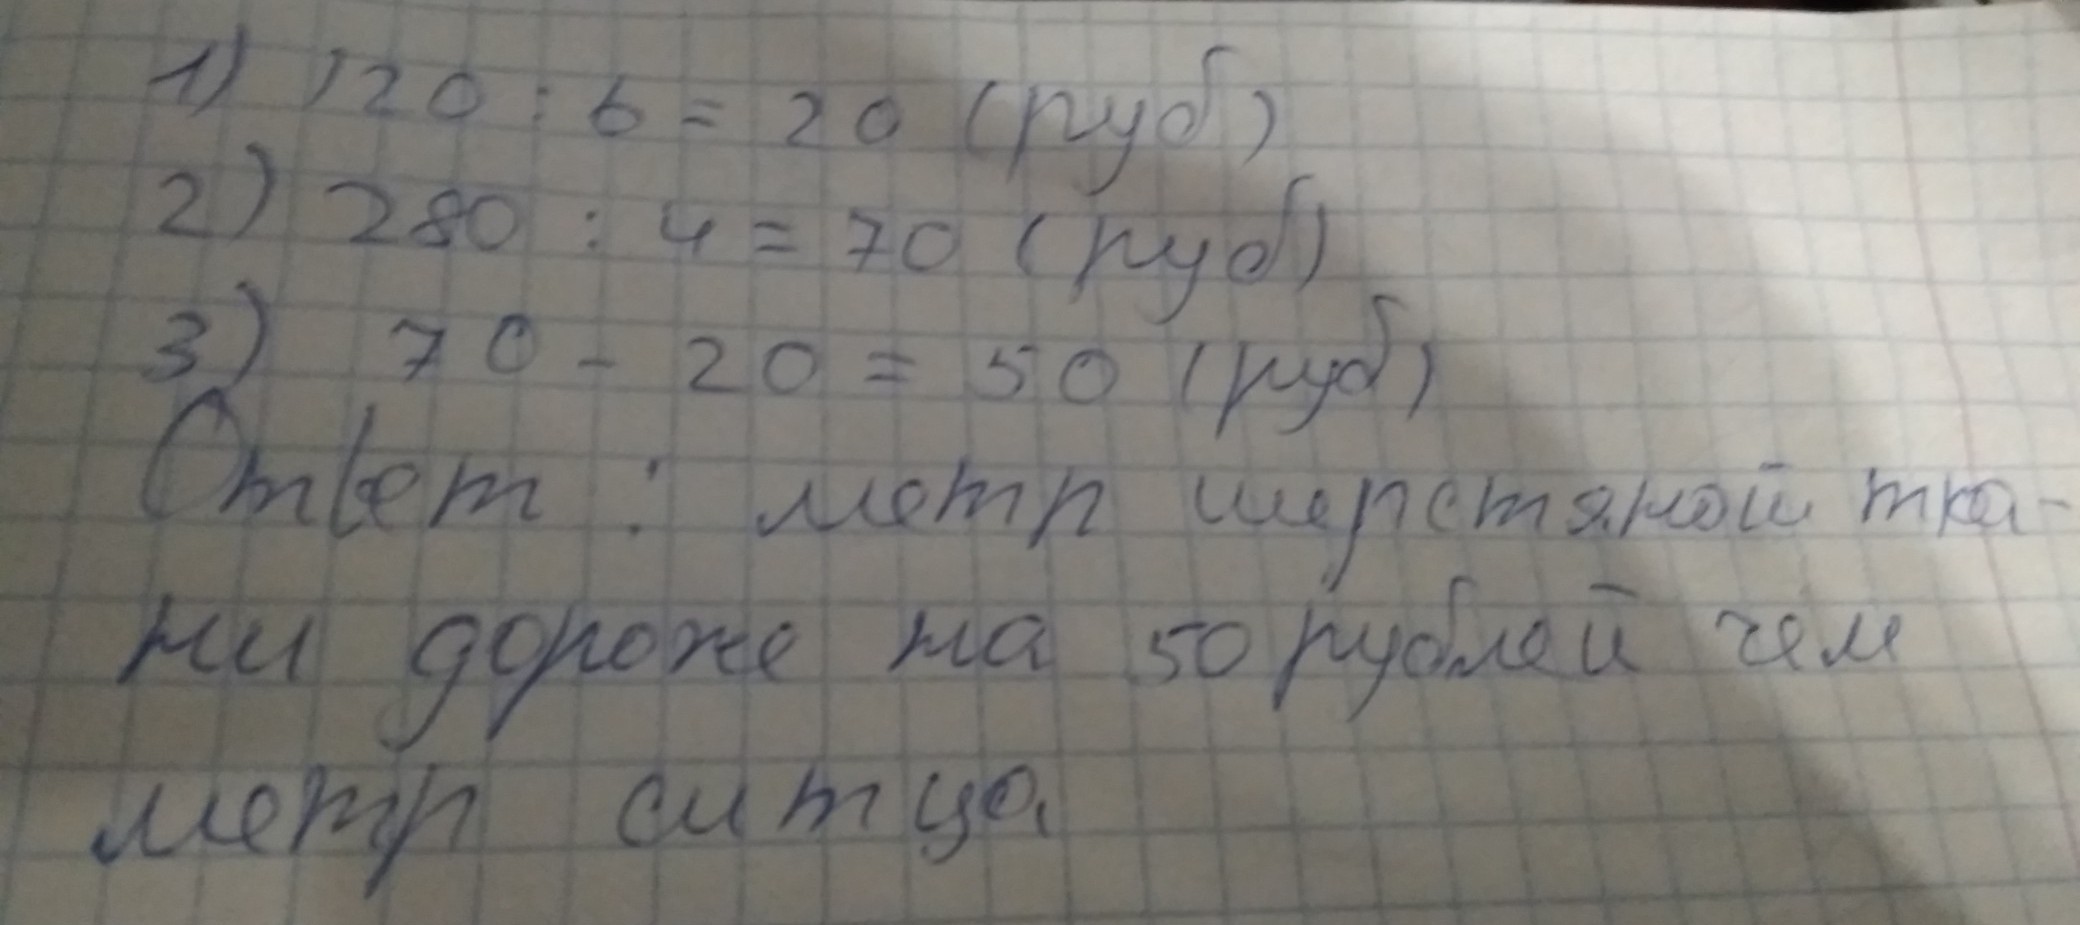 1) 120 : 6 = 20 (руб)
2) 280 : 4 = 70 (руб)
3) 70 - 20 = 50 (руб)
Ответ : метр шерстяной тка-
ни дороже на 50 рублей чем
метр ситца